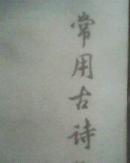 常用古诗